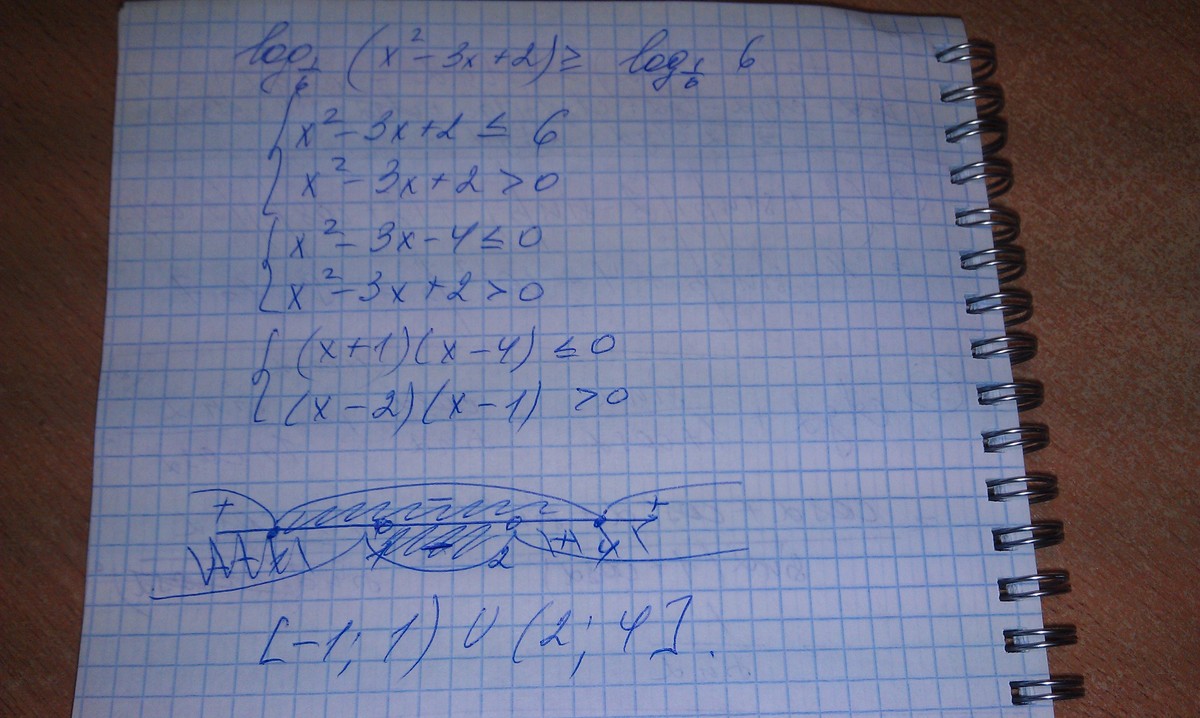 log_{1/6} (x² - 3x + 2) ≥ log_{1/6} 6
{ x² - 3x + 2 ≤ 6
x² - 3x + 2 > 0
{ x² - 3x - 4 ≤ 0
x² - 3x + 2 > 0
{ (x+1)(x-4) ≤ 0
(x-2)(x-1) > 0
+ - +
1 - 2 + 4
[-1; 1) ∪ (2; 4].